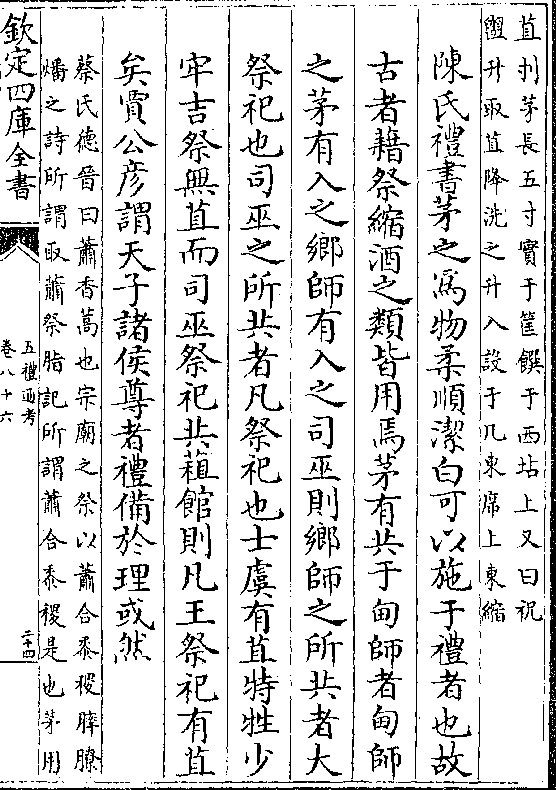 苴刌茅長五寸實于筐饌于西坫上又曰祝
盥升取苴降洗之升入設于几東席上東縮
陳氏禮書茅之為物柔順潔白可以施于禮者也故
古者藉祭縮酒之類皆用焉茅有共于甸師者甸師
之茅有入之鄉師有入之司巫則鄉師之所共者大
祭祀也司巫之所共者凡祭祀也士虞有苴特牲少
牢吉祭無苴而司巫祭祀共蒩館則凡王祭祀有苴
矣賈公彦謂天子諸侯尊者禮備於理或然
蔡氏德晉曰蕭香蒿也宗廟之祭以蕭合黍稷膟膫
燔之詩所謂取蕭祭脂記所謂蕭合黍稷是也茅用
欽定四庫全書
五禮通考
卷八十六
二十四